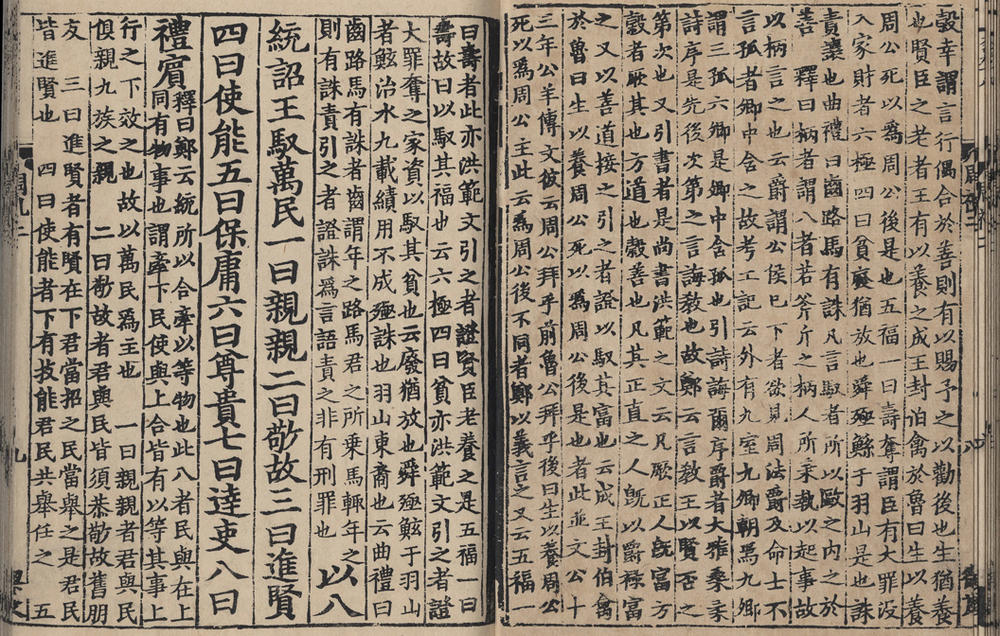 穀幸謂言行偶合於善則有以賜予之以勸後也生猶養
也賢臣之老者王有以養之成王封伯禽於魯曰生以養
周公死以爲周公後是也五福一曰壽奪謂臣有大罪沒
入家財者六極四曰貧廢猶放也舜殛鯀于羽山是也誅
責讓也曲禮曰齒路馬有誅凡言馭者所以敺之内之於
善 釋曰柄者謂八者若斧斤之柄人所秉執以起事故
以柄言之也云爵謂公侯已下者欲見周法爵及命士不
言孤者卿中含之故考工記云外有九室九卿朝焉九卿
謂三孤六卿是卿中含孤也引詩誨爾序爵者大雅桑柔
詩序是先後次第之言誨教也故鄭云言教王以賢否之
第次也又引書者是尚書洪範之文云凡厥正人旣富方
穀者厥其也方道也穀善也凡其正直之人旣以爵祿富
之又以善道接之引之者證以馭其富也云成王封伯禽
於魯曰生以養周公死以爲周公後是也者此並文公十
三年公羊傳文彼云周公拜乎前魯公拜乎後曰生以養周公
死以爲周公主此云爲周公後不同者鄭以義言之又云五福一
曰壽者此亦洪範文引之者證賢臣老養之是五福一曰
壽故曰以馭其福也云六極四曰貧亦洪範文引之者證
大罪奪之家資以馭其貧也云廢猶放也舜殛鯀于羽山
者鯀治水九載績用不成殛誅也羽山東裔也云曲禮曰
齒路馬有誅者齒謂年之路馬君之所乘馬輙年之
則有誅責引之者證誅爲言語責之非有刑罪也 以八
統詔王馭萬民一曰親親二曰敬故三曰進賢
四曰使能五曰保庸六曰尊貴七曰達吏八曰
禮賓 釋曰鄭云統所以合牽以等物也此八者民與在上
同有物事也謂牽下民使與上合皆有以等其事上
行之下效之也故以萬民爲主也 一曰親親者君與民
俱親九族之親 二曰敬故者君與民皆須恭敬故舊朋
友 三曰進賢者有賢在下君當招之民當舉之是君民
皆進賢也 四曰使能者下有技能君民共舉任之 五